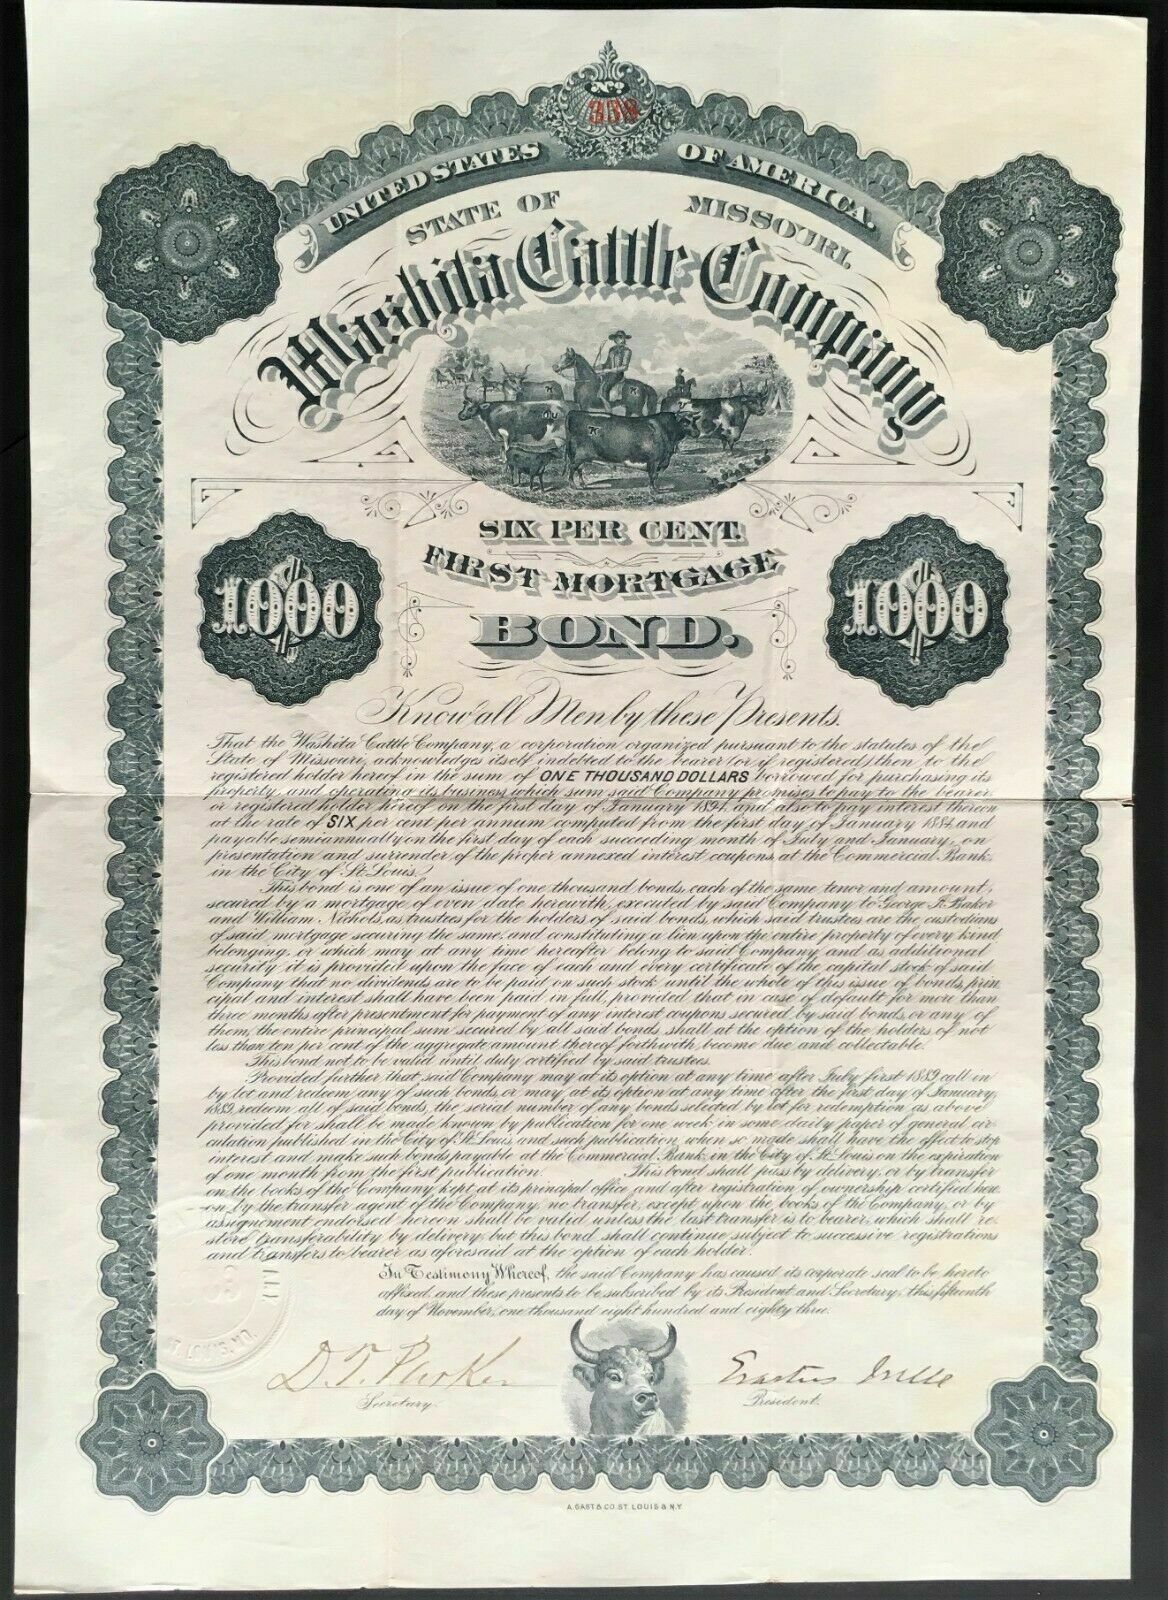 No
338
UNITED STATES OF AMERICA.
STATE OF MISSOURI.
Washita Cattle Company
SIX PER CENT.
FIRST MORTGAGE
1000 1000
BOND.
Know all Men by these Presents.
That the Washita Cattle Company, a corporation organized pursuant to the statutes of the
State of Missouri, acknowledges itself indebted to the bearer (or if registered) then to the
registered holder hereof in the sum of ONE THOUSAND DOLLARS borrowed for purchasing its
property, and operating its business, which sum said Company promises to pay to the bearer
or registered holder hereof on the first day of January 1894, and also to pay interest thereon
at the rate of SIX per cent per annum computed from the first day of January 1884, and
payable semiannually on the first day of each succeeding month of July and January, on
presentation and surrender of the proper annexed interest coupons, at the Commercial Bank,
in the City of St. Louis.
This bond is one of an issue of one thousand bonds, each of the same tenor and amount,
secured by a mortgage of even date herewith, executed by said Company to George A. Baker
and William Nichols, as trustees for the holders of said bonds, which said trustees are the custodians
of said mortgage securing the same and constituting a lien upon the entire property of every kind
belonging, or which may at any time hereafter belong to said Company, and as additional
security it is provided upon the face of each and every certificate of the capital stock of said
Company that no dividends are to be paid on such stock until the whole of this issue of bonds, prin
cipal and interest shall have been paid in full, provided that in case of default for more than
three months after presentment for payment of any interest coupons secured by said bonds, or any of
them, the entire principal sum secured by all said bonds shall at the option of the holders of not
less than ten per cent of the aggregate amount thereof forthwith become due and collectable.
This bond not to be valid until duly certified by said trustees.
Provided further that said Company may at its option at any time after July first 1889, call in
by lot and redeem any of such bonds, or may at its option at any time after the first day of January,
1889, redeem all of said bonds, the serial number of any bonds selected by lot for redemption as above
provided for shall be made known by publication for one week in some daily paper of general cir-
culation published in the City of St. Louis, and such publication when so made shall have the effect to stop
interest and make such bonds payable at the Commercial Bank in the City of St. Louis on the expiration
of one month from the first publication. This bond shall pass by delivery, or by transfer
on the books of the Company kept at its principal office and after registration of ownership certified here
on by the transfer agent of the Company, no transfer, except upon the books of the Company, or by
assignment endorsed hereon shall be valid unless the last transfer is to bearer, which shall re-
store transferability by delivery, but this bond shall continue subject to successive registrations
and transfers to bearer as aforesaid at the option of each holder.
In Testimony Whereof, the said Company has caused its corporate seal to be hereto
affixed, and these presents to be subscribed by its President and Secretary, this fifteenth
day of November, one thousand eight hundred and eighty three.
ST. LOUIS, MO.
D. T. Parker Erastus
Secretary. President.
A. GAST & CO. ST. LOUIS & N.Y.